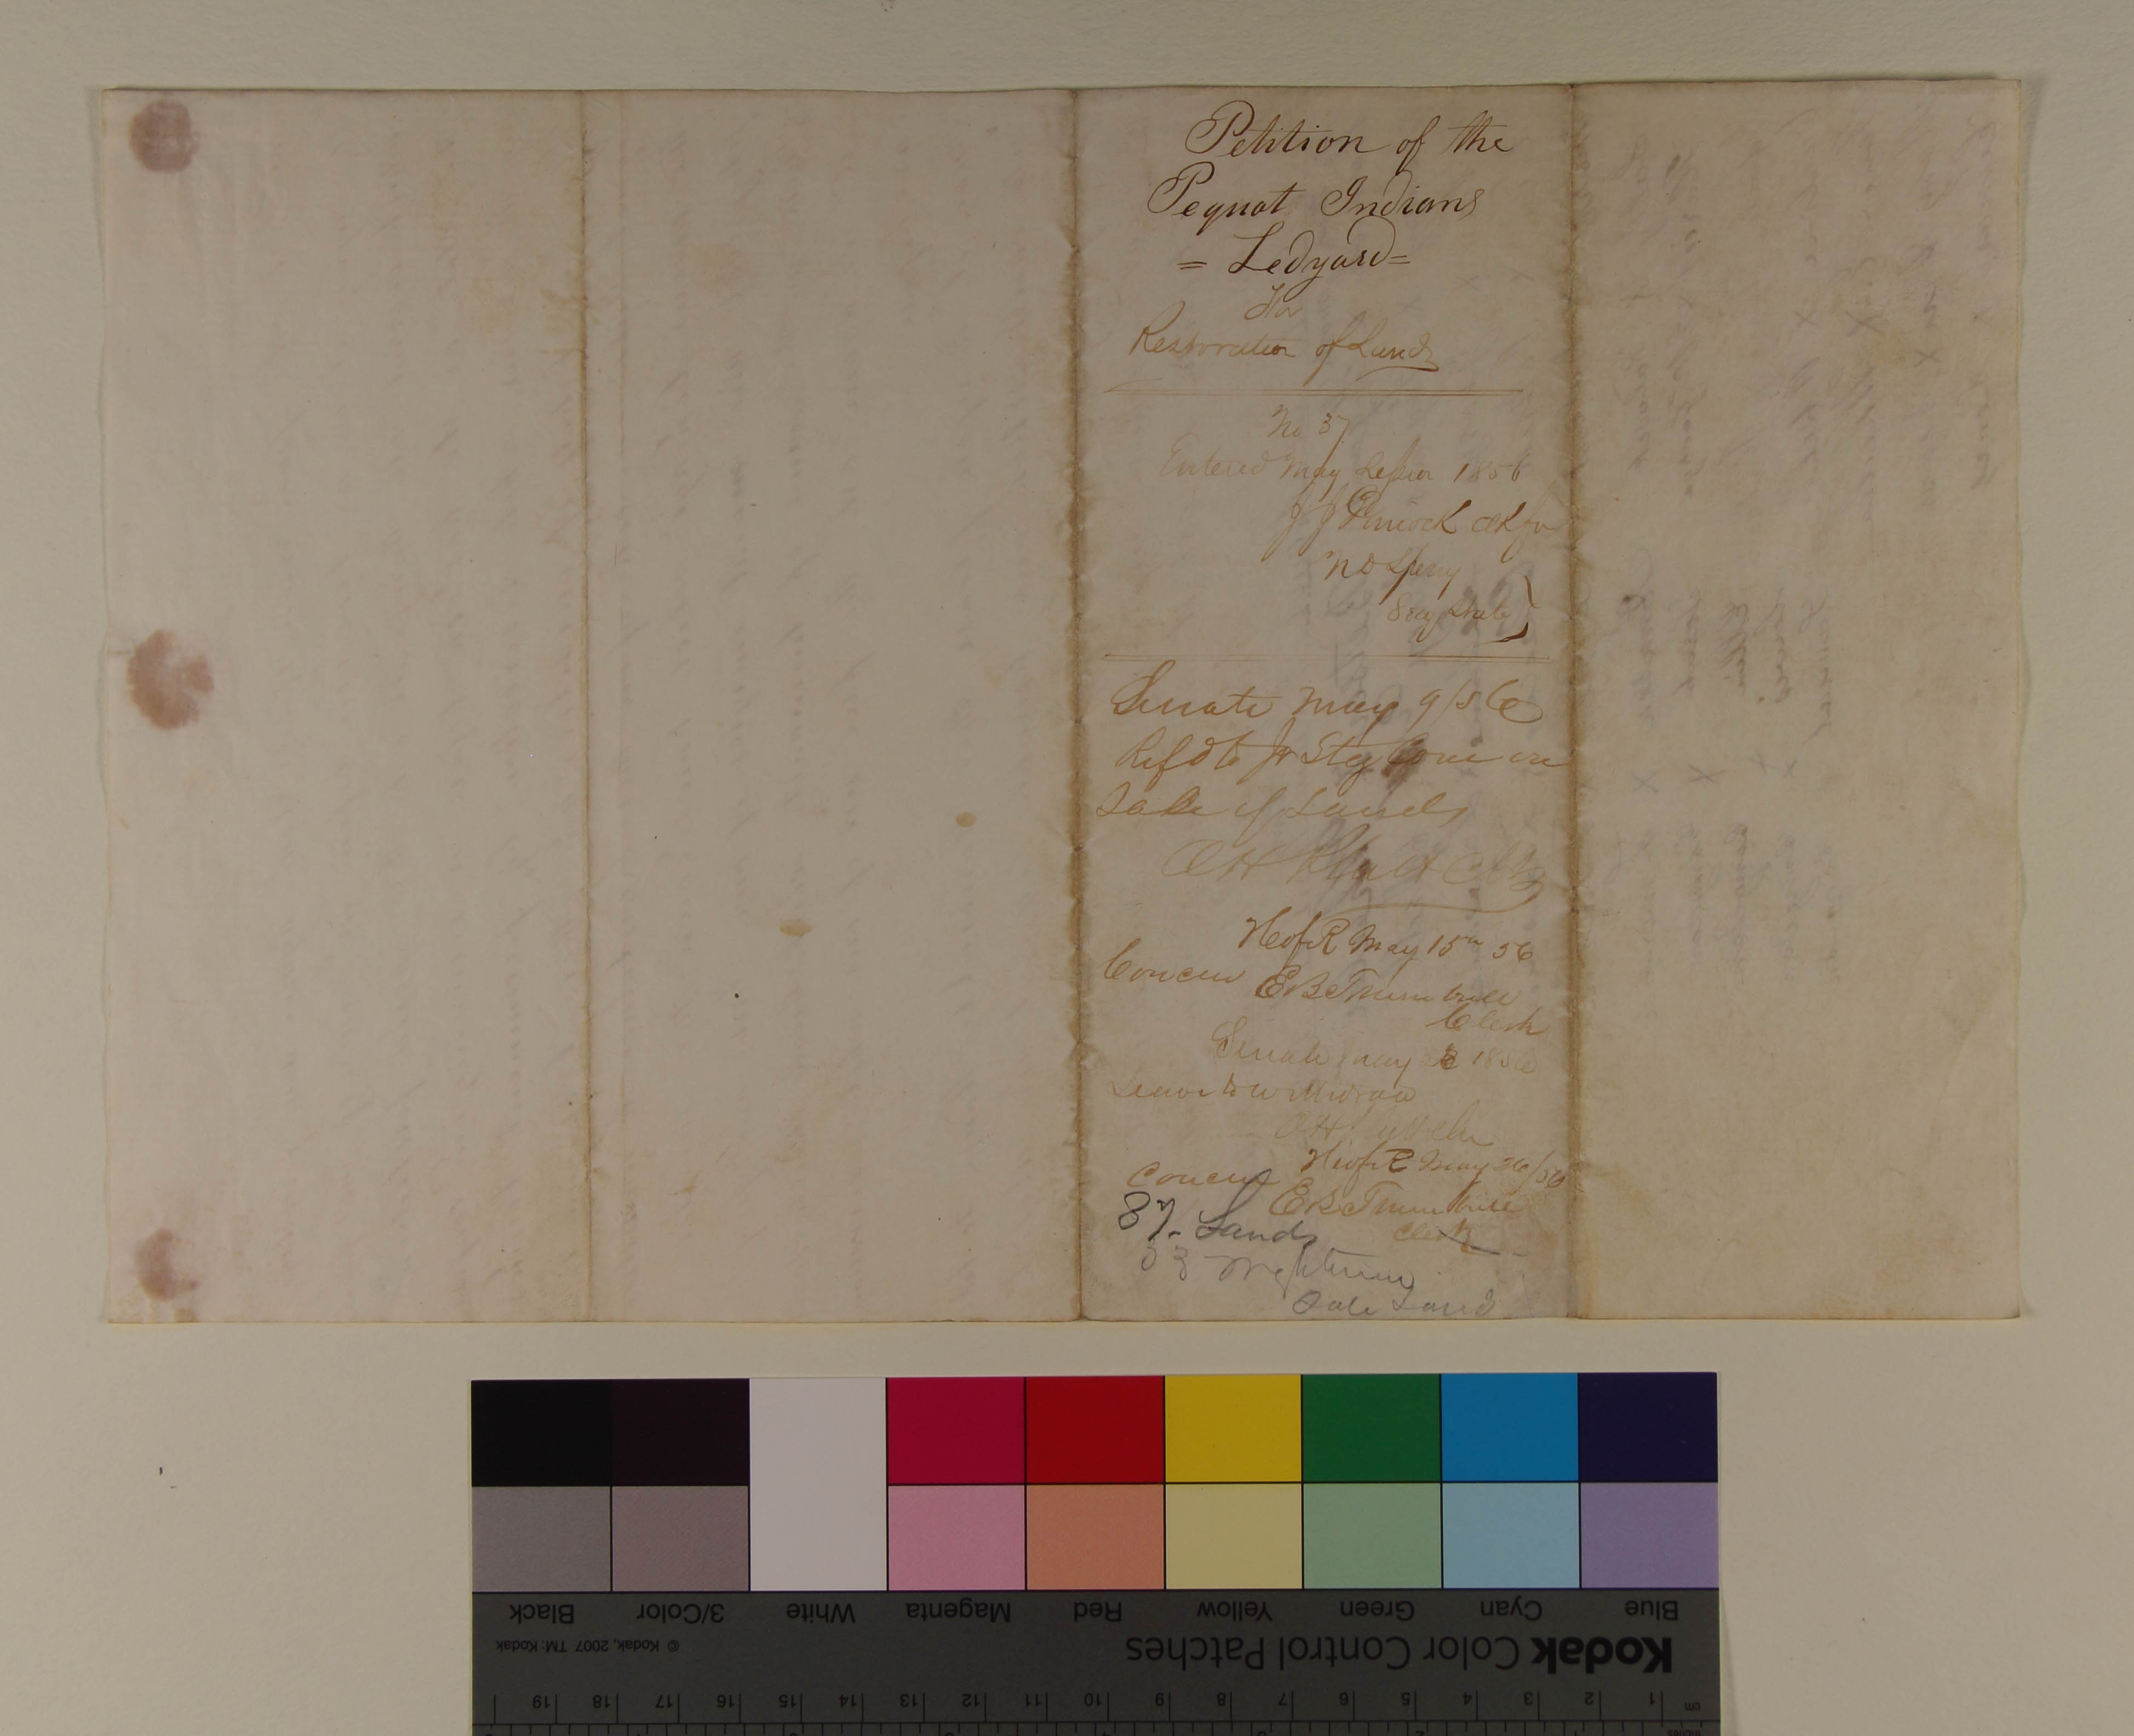 Petition of the
Pequot Indians
= Ledyard =
For
Restoration of Lands
No 37
Entered May Session 1856
J J Penrock Clk for
N D Sperry
Secy State
Senate May 9/56
Refd to Jt Stg Com on
Sale of Lands
O H Platt Clk
H of R May 15th 56
Concur E B Trumbull
Clerk
Senate May 1856
Leave to withdraw
O H Platt Clk
H of R May 26/56
Concur
E B Trumbull
Clerk
87. Lands
33
Sale Land
Black 3/Color White Magenta Red Yellow Green Cyan Blue
© Kodak, 2007 TM: Kodak
Kodak Color Control Patches
cm 1 2 3 4 5 6 7 8 9 10 11 12 13 14 15 16 17 18 19
inches